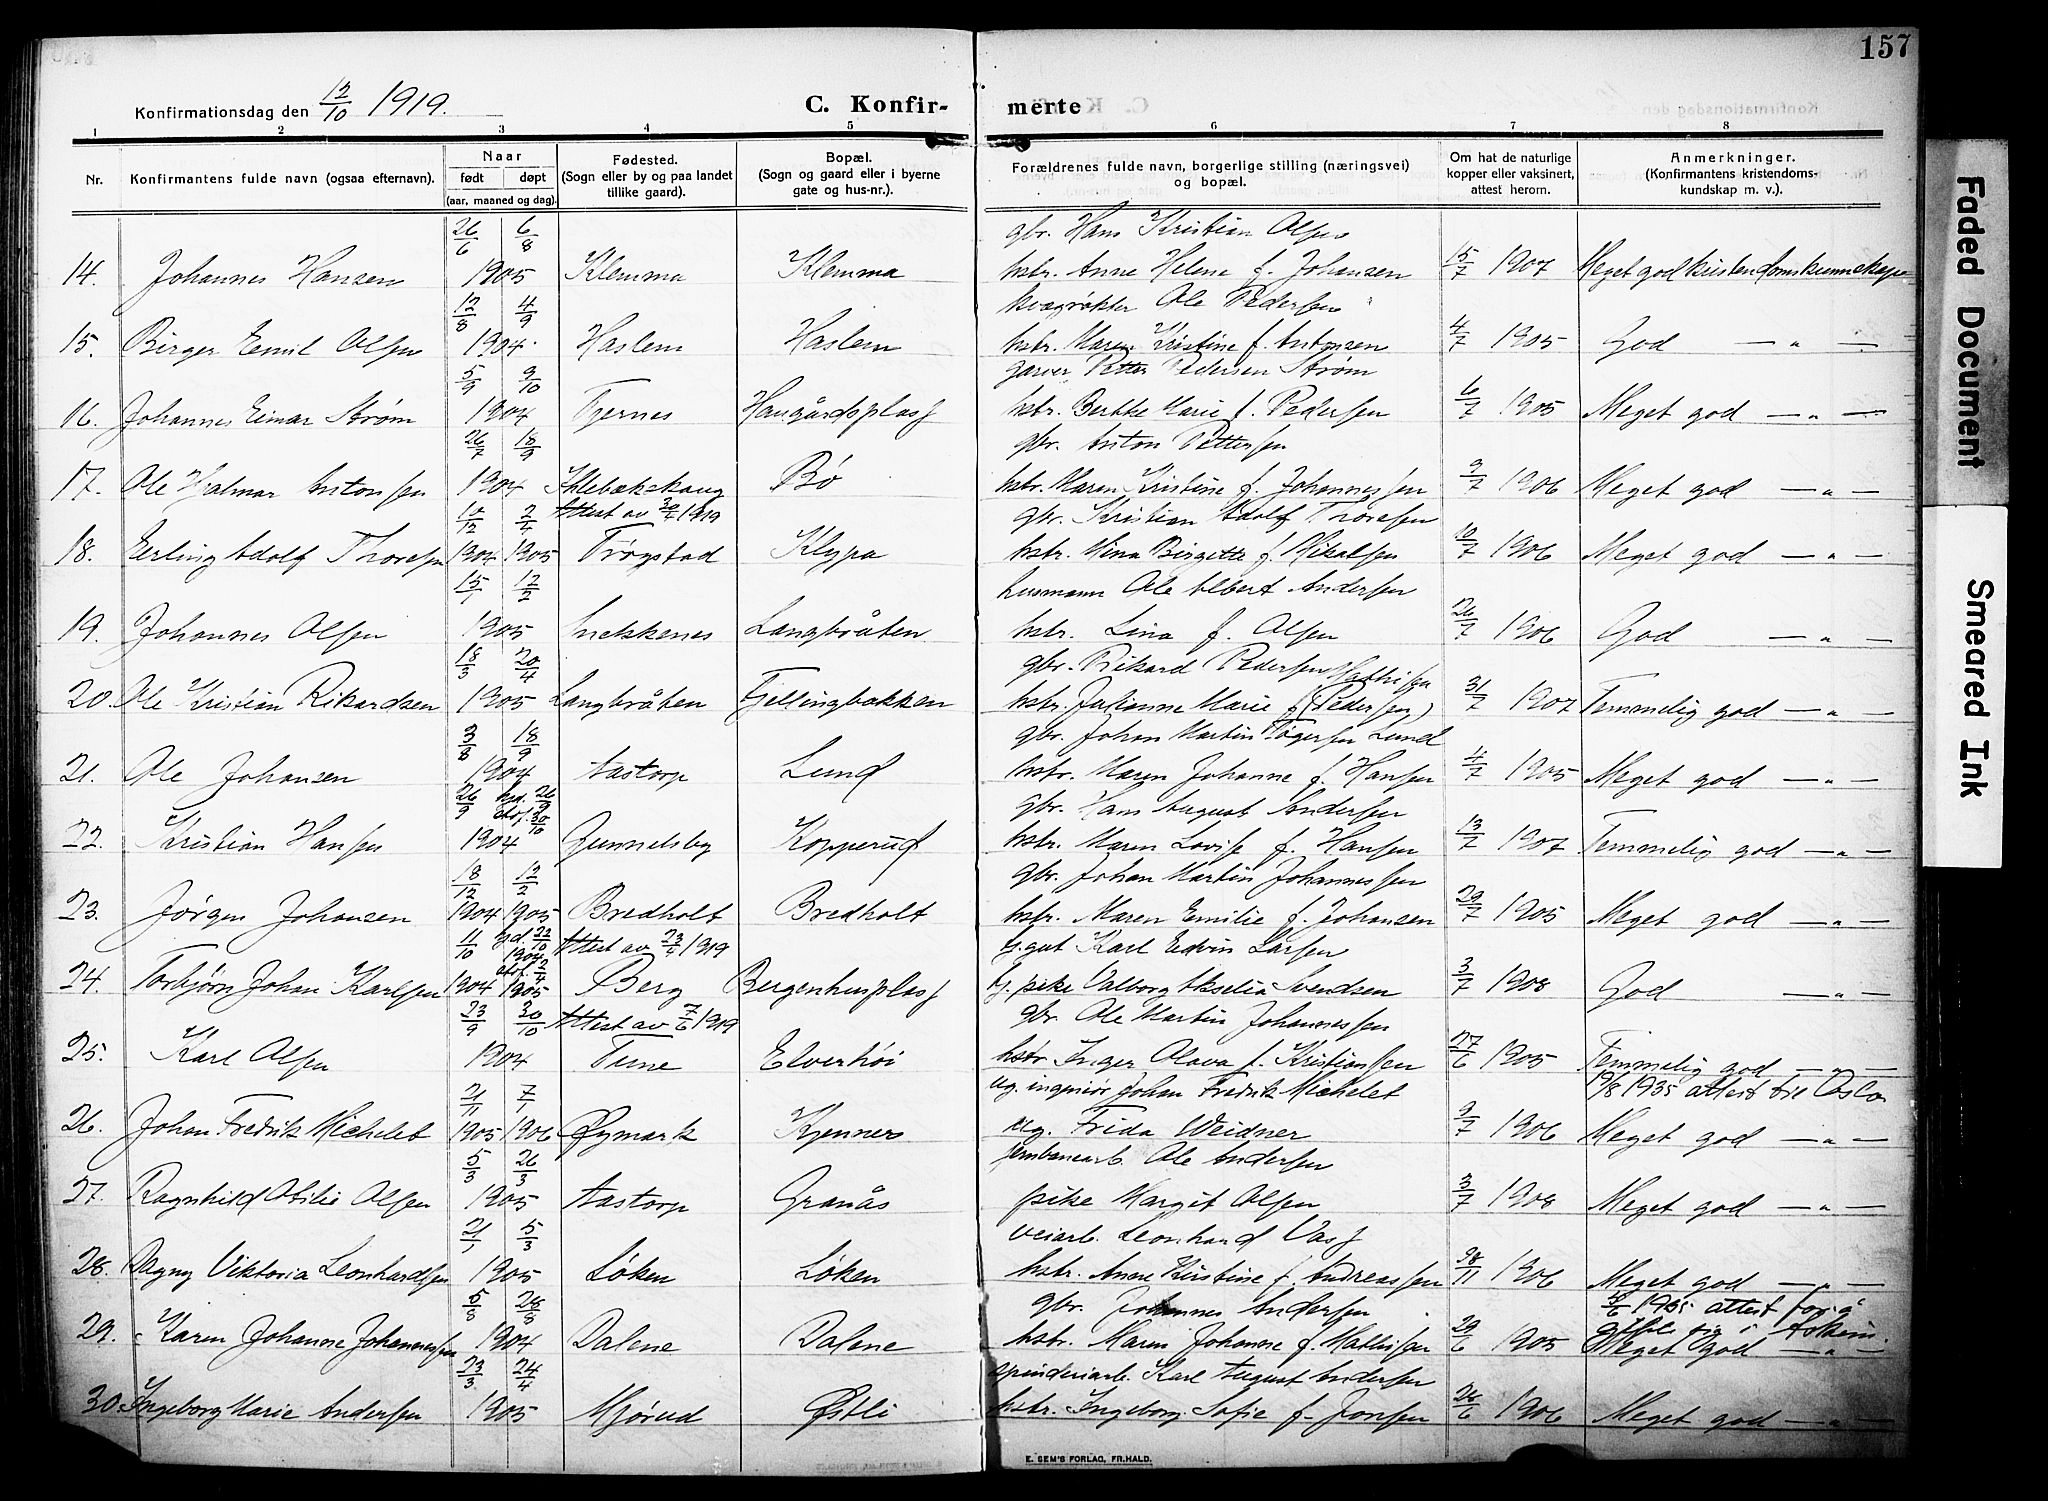 157
Konfirmationsdag den 12/10 1919.
C. Konfirmerte
1 2 3 4 5 6 7 8
Nr. Konfirmantens fulde navn (ogsaa efternavn). Naar født døpt (aar, maaned og dag). Fødested. (Sogn eller by og paa landet tillike gaard). Bopæl. (Sogn og gaard eller i byerne gate og hus-nr.). Forældrenes fulde navn, borgerlige stilling (næringsvei) og bopæl. Om hat de naturlige kopper eller vaksinert, attest herom. Anmerkninger. (Konfirmantens kristendomskundskap m. v.).
26/6 6/8 gbr. Hans Kristian Olsen
14. Johannes Hansen 1905 Klemma Klemma hstr. Anne Helene f. Johansen 15/7 1907 Meget god kristendomskunnskap
12/8 4/9 kvægrøkter Ole Pedersen
15. Birger Emil Olsen 1904 Haslem Haslem hstr. Maren Kristine f. Antonsen 4/7 1905 God — " —
5/9 9/10 garver Petter Pedersen Strøm
16. Johannes Einar Strøm 1904 Tjernes Haugårdsplass hstr. Berthe Marie f. Pedersen 6/7 1905 Meget god — " —
26/7 18/9 gbr. Anton Pettersen
17. Ole Hjalmar Antonsen 1904 Iklebækskaug Bø hstr. Maren Kristine f. Johannessen 9/7 1906 Meget god — " —
10/12 2/4 Attest av 30/4 1919 gbr. Kristian Adolf Thoresen
18. Erling Adolf Thoresen 1904 1905 Trøgstad Klypa hstr. Mina Birgitte f. Mikalsen 10/7 1906 Meget god — " —
15/1 12/2 husmann Ole Albert Andersen
19. Johannes Olsen 1905 Snekkenes Langbråten hstr. Lina f. Olsen 26/7 1906 God — " —
18/3 20/4 gbr. Rikard Pedersen Mathisen
20. Ole Kristian Rikardsen 1905 Langbråten Fjellingbakken hstr. Julianne Marie f. (Pedersen) 31/7 1907 Temmelig god — " —
3/8 18/9 gbr. Johan Martin Tøgersen Lund
21. Ole Johansen 1904 Aastorp Lund hstr. Maren Johanne f. Hansen 4/7 1905 Meget god — " —
26/9 hjd. 26/9 stf. 30/10 gbr. Hans August Andersen
22. Kristian Hansen 1904 Gunnelsby Kopperud hstr. Maren Lovise f. Hansen 13/7 1907 Temmelig god — " —
18/12 12/2 gbr. Johan Martin Johannessen
23. Jørgen Johansen 1904 1905 Bredholt Bredholt hstr. Maren Emilie f. Johansen 29/7 1905 Meget god — " —
11/10 hjd. 22/10 1904 Attest av 23/4 1919 g. gut Karl Edvin Larsen
24. Torbjørn Johan Karlsen 1904 stf. 2/4 1905 Berg Bergenhusplass g. pike Valborg Akselia Svendsen 3/7 1908 God — " —
23/9 30/10 Attest av 7/6 1919 gbr. Ole Martin Johannessen
25. Karl Olsen 1904 Tune Elverhøi hstr. Inger Olava f. Kristianssen 27/6 1905 Temmelig god — " —
21/11 7/1 ug. ingeniør Johan Fredrik Michelet 19/8 1935 attest til Oslo
26. Johan Fredrik Michelet 1905 1906 Øymark Kjennes ug. Frida Weidner 9/7 1906 Meget god — " —
5/3 26/3 jernbanearb. Ole Andersen
27. Ragnhild Otilie Olsen 1905 Aastorp Granås pike Margit Olsen 3/7 1908 Meget god — " —
21/1 5/3 veiarb. Leonhard Vass
28. Dagny Viktoria Leonhardsen 1905 Løken Løken hstr. Anne Kirstine f. Andreassen 28/11 1906 Meget god — " —
5/8 28/8 gbr. Johannes Andersen 1935 attest for å
29. Karen Johanne Johannessen 1904 Dalene Dalene hstr. Maren Johanne f. Mathisen 29/6 1905 gifte sig i Askim. Meget god — " —
23/3 24/4 spinderiarb. Karl August Andersen
30. Ingeborg Marie Andersen 1905 Mjørud Østli hstr. Ingeborg Sofie f. Jonsen 28/6 1906 Meget god — " —
E. SEM'S FORLAG, FR.HALD.
Faded Document
Smeared Ink